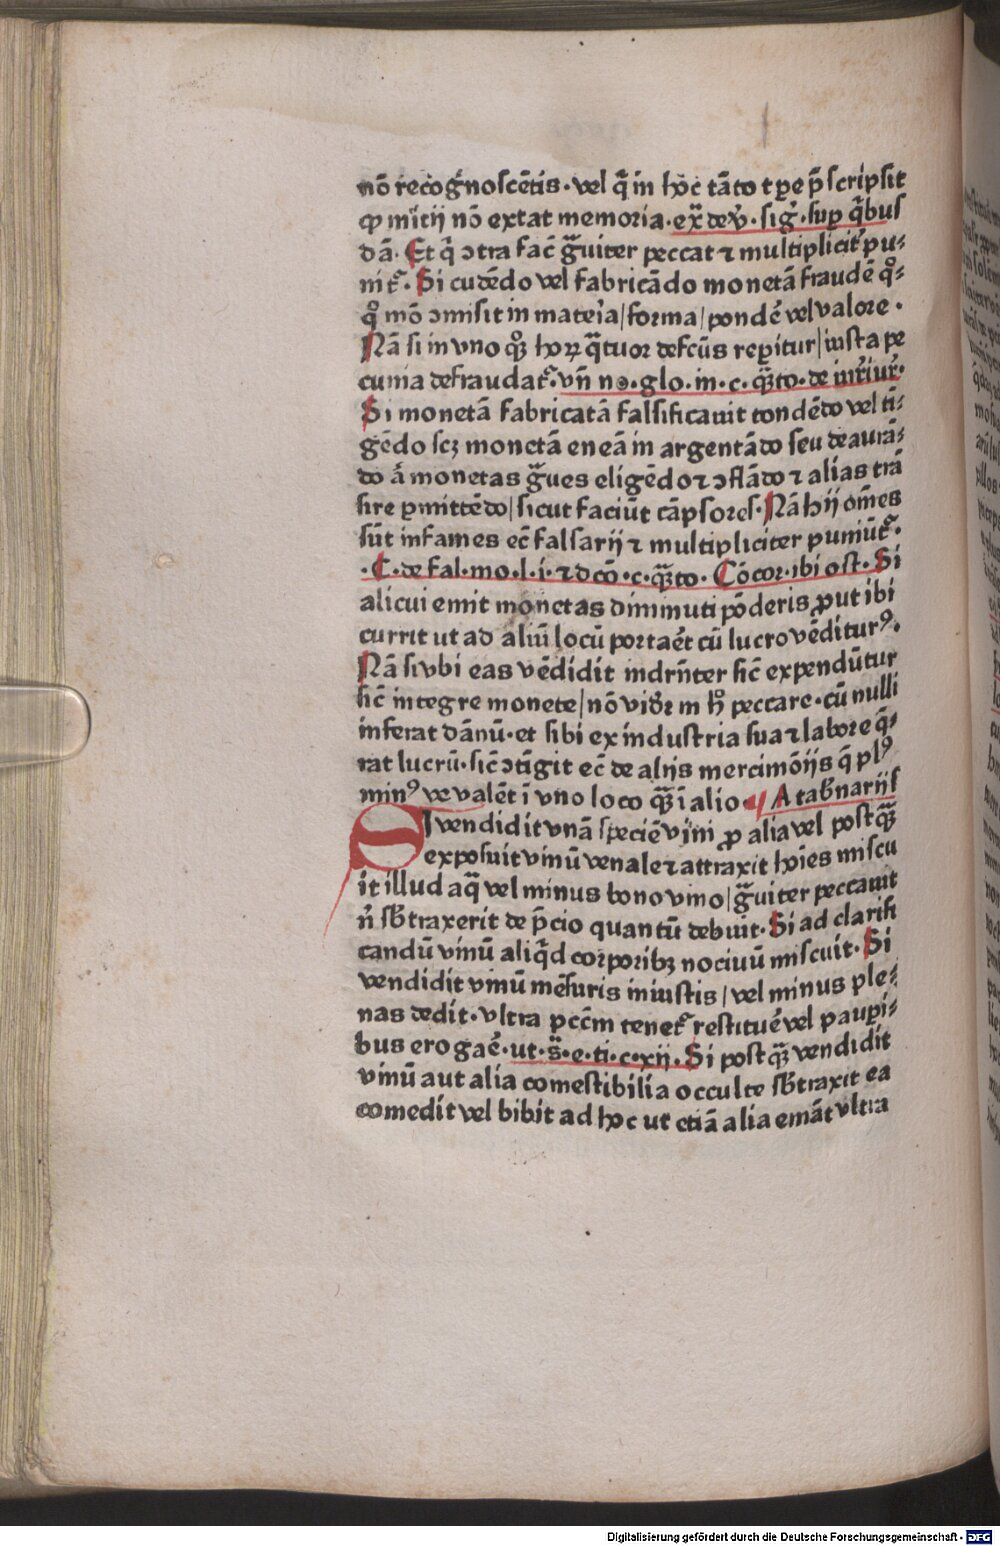 nō recognoscētis · vel q̄ in hoc tāto tꝑe p̄scripsit
ꝙ initij nō extat memoria · ex̄ de v̄ · siḡ · suꝑ q̄bus
dā · Et q̄ ꝯtra fac̄ g̃uiter peccat ⁊ multiplicit͛ pu-
nit͛ · Si cudēdo vel fabricādo monetā fraudē q̊-
q̊ mō ꝯmisit in mat͛ia / forma / pondē vel valore ·
Nā si in vno q̊ꝫ hoꝝ q̃tuor defectus reꝑitur / iusta pe
cunia defraudat͛ · vn̄ no · glo · in · c · q̃to · de iureiur̄ ·
Si monetā fabricatā falsificauit tondēdo vel tī-
gēdo scꝫ monetā eneā in argentādo seu deaurā-
do ā monetas g̃ues eligēdo ⁊ ꝯflādo ⁊ alias trā
sire ꝑmittēdo / sicut faciūt cāpsores · Nā hij om̄es
sūt infames ec̄ falsarij ⁊ multipliciter puniūt͛ ·
· C · de fal · mo · l · i · ⁊ d cō · c · q̃to · Cōcor · ibi ost · Si
alicui emit monetas diminuti pōderis ꝓut ibi
currit ut ad aliū locū portaēt cū lucro vēditurꝰ ·
Nā si vbi eas vēdidit indrn̄ter sic̄ expendūtur
sic̄ integre monete / nō vidr̄ in h̊ peccare · cū nulli
inferat dānū · et sibi ex industria sua ⁊ labore q̄-
rat lucrū · sic̄ ꝯtīgit ec̄ de alijs mercimōijs q̄ plꝰ
minꝰ ve valēt ī vno loco q̃ꝫ ī alio · ¶ A tab̄narijs
SI vendidit vnā speciē vini ꝓ alia vel postq̃ꝫ
exposuit vinū venale ⁊ attraxit hoīes miscu
it illud aq̃ vel minus bono vino / g̃uiter peccauit
n̄ sb̄traxerit de p̄cio quantū debuit · Si ad clarifi
candū vinū aliq̄d corporibꝫ nociuū miscuit · Si
vendidit vinū mēsuris iniustis / vel minus ple-
nas dedit · vltra pcc̄m tenet͛ restituē vel pauꝑi-
bus erogaē · ut · s̄ · e · ti · c · xij · Si postq̃ꝫ vendidit
vinū aut alia comestibilia occulte sb̄traxit ea
comedit vel bibit ad hoc ut etiā alia emāt vltra
Digitalisierung gefördert durch die Deutsche Forschungsgemeinschaft - DFG